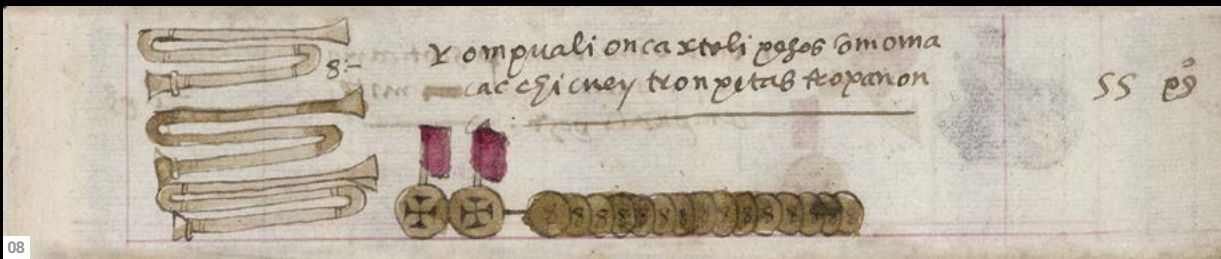 8
Y ompuali oncaxtoli pesos omoma
cac chicuey tronpetas teopanon
ca
55 ps
08